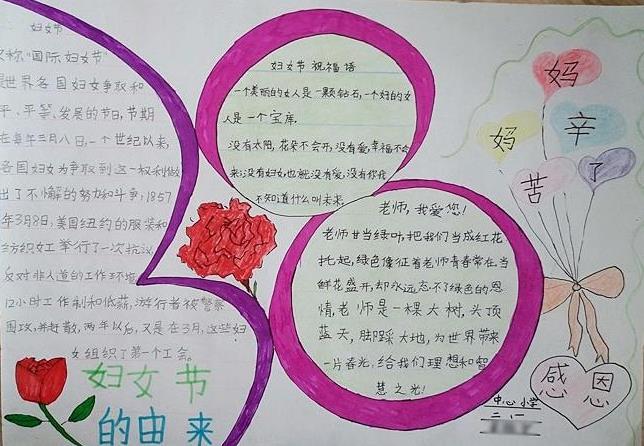 妇女节
又称“国际妇女节”
是世界各国妇女争取和
平、平等、发展的节日,节期
在每年三月八日,一个世纪以来,
各国妇女为争取到这一权利做
出了不懈的努力和斗争;1857
年3月8日,美国纽约的服装和
纺织女工举行了一次抗议,
反对非人道的工作环境
12小时工作制和低薪,游行者被警察
围攻,并赶散,两年以后,又是在3月,这些妇
女组织了第一个工会。
妇女节
的由来
妇女节祝福语
一个美丽的女人是一颗钻石,一个好的女
人是一个宝库。
没有太阳,花朵不会开,没有爱,幸福不会
来;没有妇女,也就没有爱,没有你我
不知道什么叫未来
老师,我爱您!
老师甘当绿叶,把我们当成红花
托起,绿色像征着老师青春常在,当
鲜花盛开,却永远忘不了绿色的恩
情,老师是一棵大树,头顶
蓝天,脚踩大地,为世界带来
一片春光,给我们理想和智
慧之光!
妈
妈
辛
苦
了
感恩
中心小学
二、1